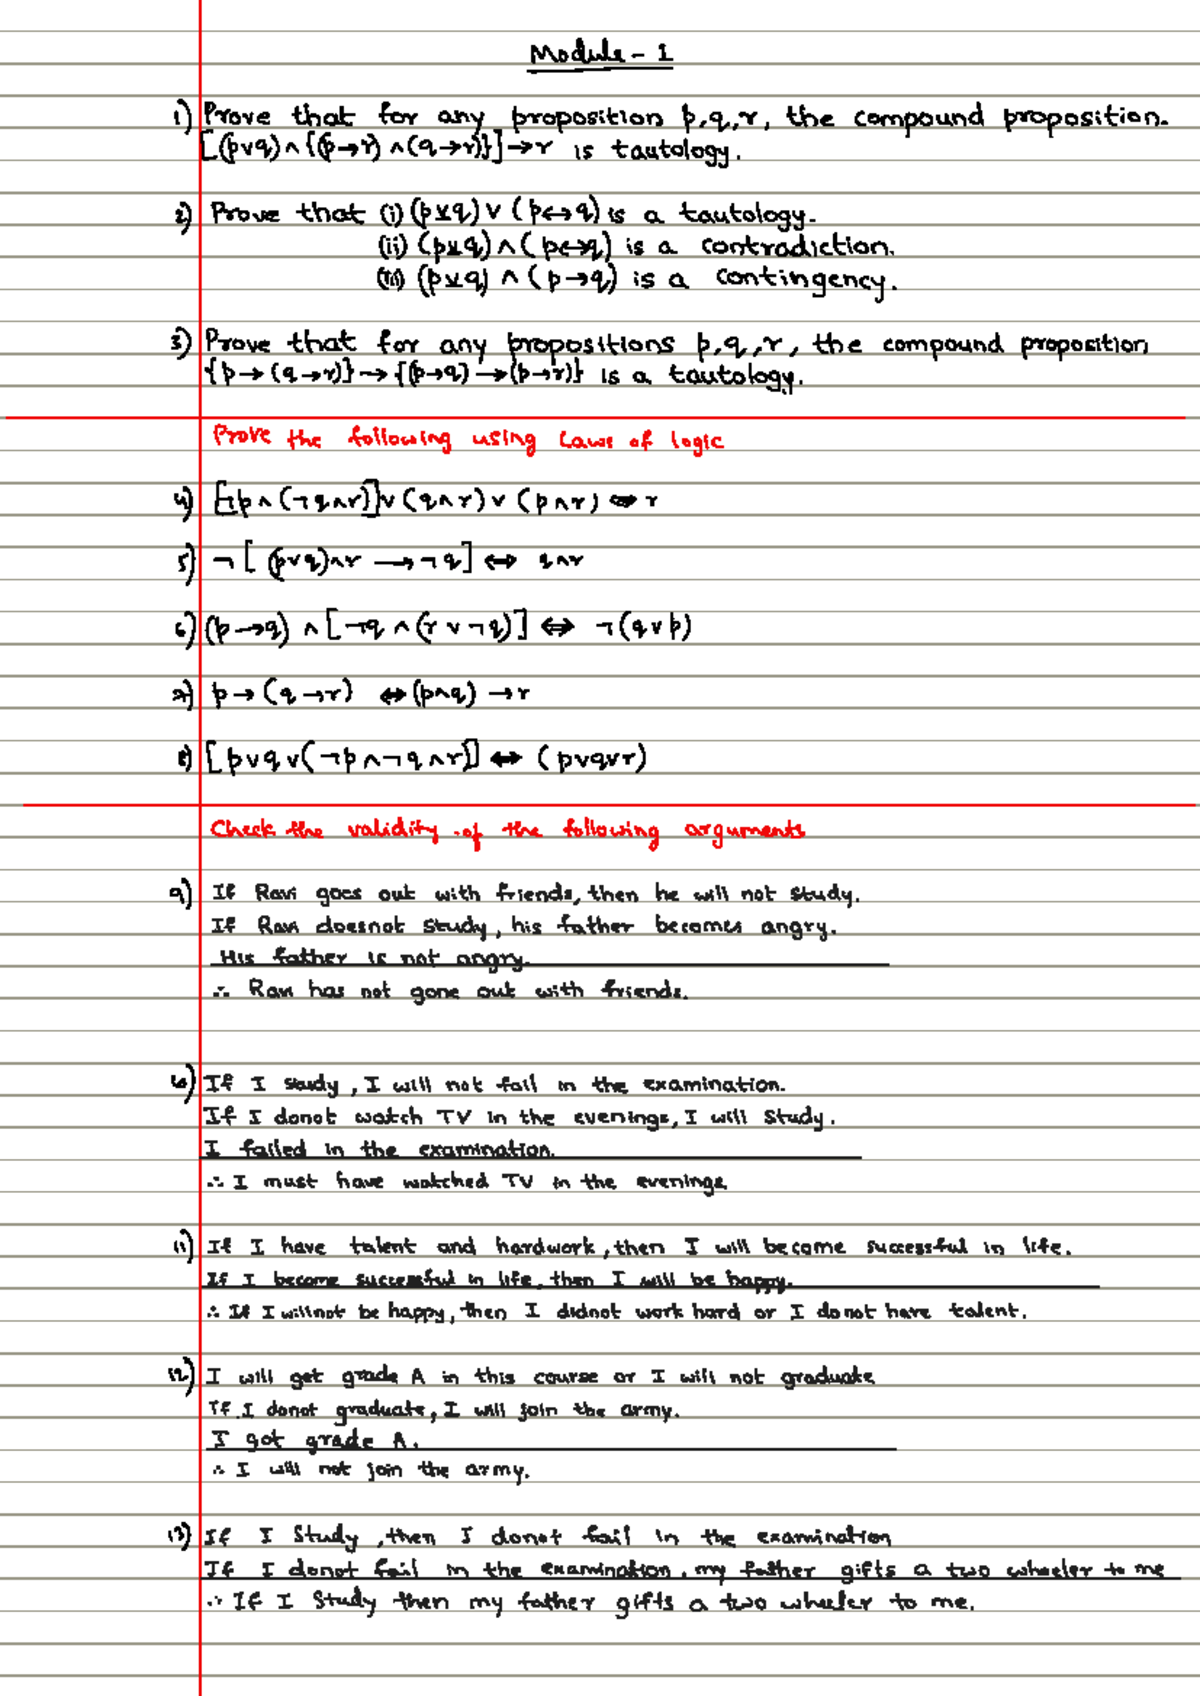 Module - 1
1) Prove that for any proposition p,q,r, the compound proposition.
[(p∨q)∧{(p→r)∧(q→r)}]→r is tautology.
2) Prove that (i) (p⊻q)∨(p↔q) is a tautology.
(ii) (p⊻q)∧(p↔q) is a contradiction.
(iii) (p⊻q)∧(p→q) is a contingency.
3) Prove that for any propositions p,q,r, the compound proposition
{p→(q→r)}→{(p→q)→(p→r)} is a tautology.
Prove the following using Laws of logic
4) [¬p∧(¬q∧r)]∨(q∧r)∨(p∧r) ⇔ r
5) ¬[(p∨q)∧r→¬q] ⇔ q∧r
6) (p→q)∧[¬q∧(r∨¬q)] ⇔ ¬(q∨p)
7) p→(q→r) ⇔ (p∧q)→r
8) [p∨q∨(¬p∧¬q∧r)] ⇔ (p∨q∨r)
Check the validity of the following arguments
9) If Ravi goes out with friends, then he will not study.
If Ravi doesnot study, his father becomes angry.
His father is not angry.
∴ Ravi has not gone out with friends.
10) If I study, I will not fail in the examination.
If I donot watch TV in the evenings, I will study.
I failed in the examination.
∴ I must have watched TV in the evenings
11) If I have talent and hardwork, then I will become successful in life.
If I become successful in life, then I will be happy.
∴ If I willnot be happy, then I didnot work hard or I donot have talent.
12) I will get grade A in this course or I will not graduate
If I donot graduate, I will join the army.
I got grade A.
∴ I will not join the army.
13) If I Study, then I donot fail in the examination
If I donot fail in the examination, my father gifts a two wheeler to me
∴ If I Study then my father gifts a two wheeler to me.